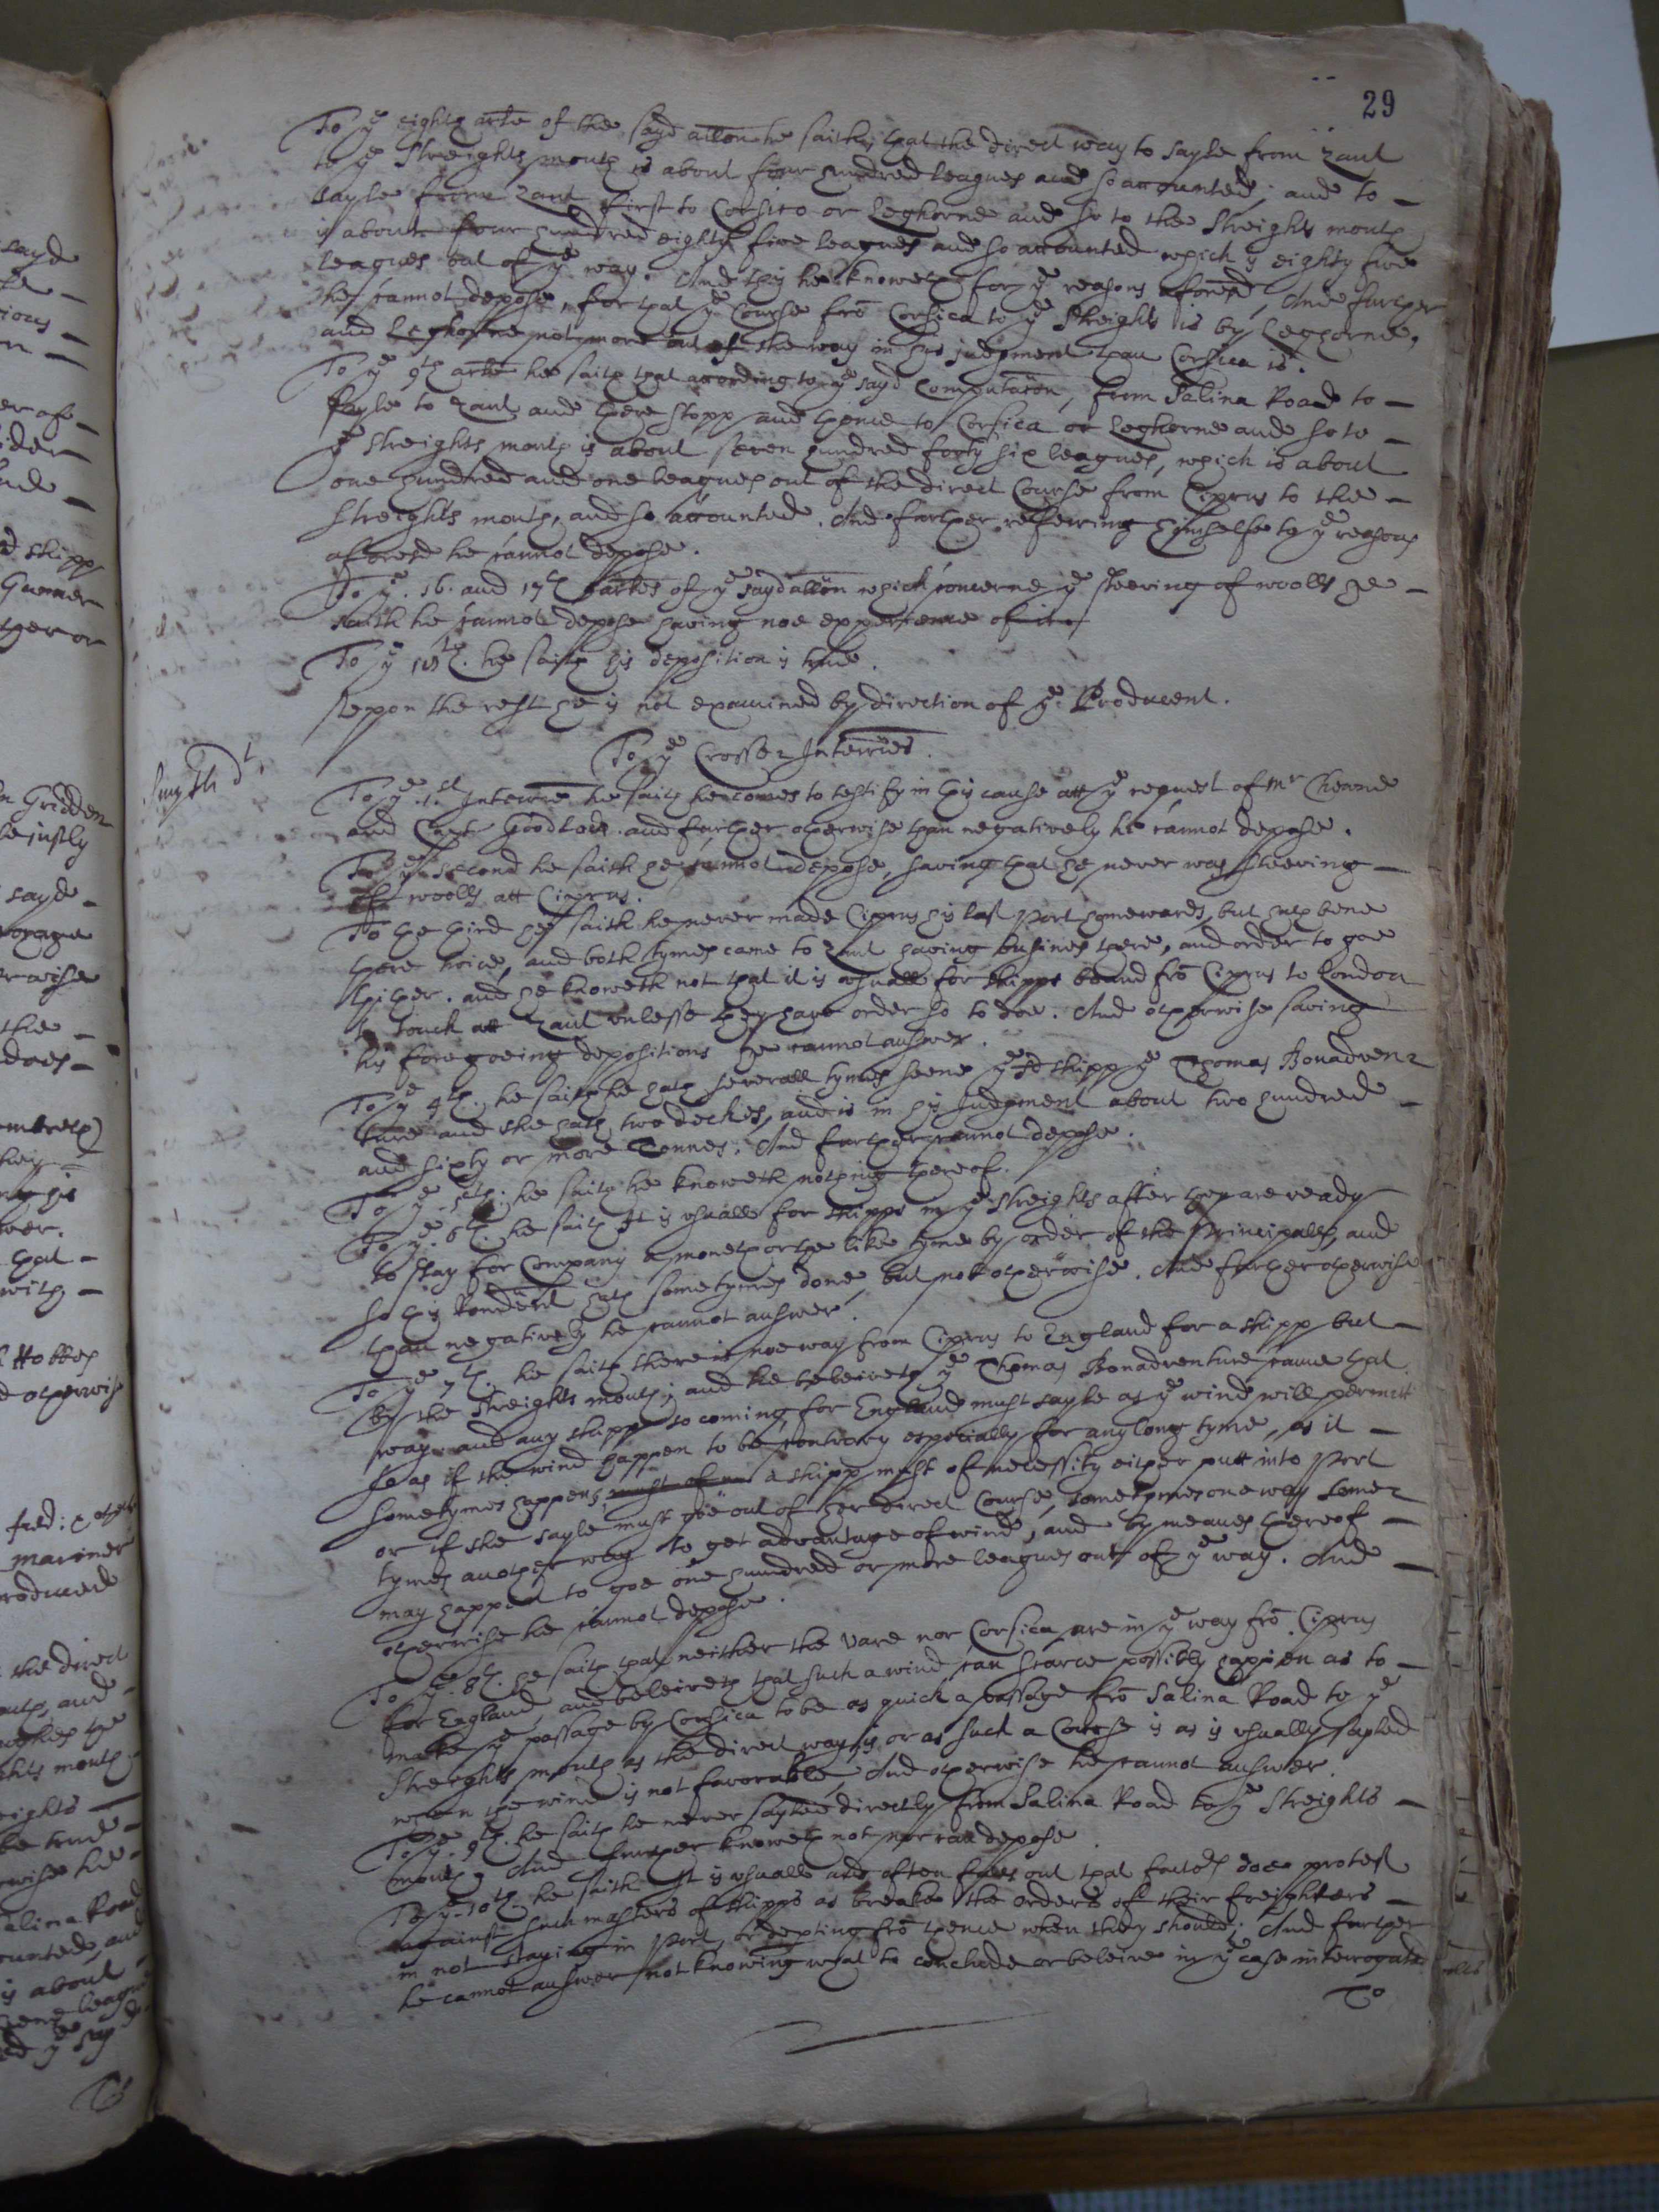 29
To ye eighth arte of the sayd allon he saith, that the direct way to sayle from Zant
to ye Streights mouth is about four hundred leagues and so accounted; and to -
sayle from Zant first to Corsico or Leghorne and so to the Streights mouth
is about four hundred eighty five leagues and so accounted which is eighty five
leagues out of ye way. And this he knoweth for ye reasons aforesd, And further
he cannot depose, for that ye Course frō Corsica to ye Streights is by Leghorne,
and Leghorne not more out of the way in his judgment than Corsica is.
To ye 9th arte he saith that according to ye sayd Computacon, from Salina Road to -
sayle to Zant and there stopp and thence to Corsica or Leghorne and so to -
ye Streights mouth is about seven hundred forty six leagues, which is about
one hundred and one leagues out of the direct Course from Ciprus to the -
Streights mouth, and so accounted. And further referring himselfe to ye reasons
aforesd he cannot depose.
To ye. 16. and 17th artes of ye sayd allon which concerne ye steering of woolls he -
saith he cannot depose having noe experience of it
To ye 18th. he saith his deposition is true.
Uppon the rest he is not examined by direction of ye Producent.
To ye Crosse Interries.
Smyth dt.
To ye .1.st Interrie he saith he comes to testify in this cause att ye request of Mr Cheane
and Capt Goodlad. and further otherwise than negatively he cannot depose.
To ye second he saith he cannot depose, saving that he never was steeving -
of woolls att Ciprus.
To the third he saith he never made Ciprus his last Port homewards, but hath bene
there twice, and both tymes came to Zant having busines there, and order to goe
thither. and he knoweth not that it is usuall for shipps bound frō Ciprus to London
to touch att Zant unlesse they have order so to doe. And otherwise saving
his foregoeing depositions he cannot answer.
To ye 4th. he saith he hath severall tymes seene ye sd shipp ye Thomas Bonadven=
ture and she hath two deckes, and is in his Judgment about two hundred -
and sixty or more Tonnes. And further cannot depose.
To ye. 5th: he saith he knoweth nothing thereof.
To ye. 6th. he saith It is usuall for shipps in ye Streights after they are ready
to stay for Company a moneth or the like tyme by order of the Principalls, and
so this Rendent hath sometymes done, but not otherwise. And further otherwise
than negatively he cannot answer.
To ye 7th. he saith there is noe way from Ciprus to England for a shipp but -
by the Streights mouth; and he beleiveth ye Thomas Bonadventure came that
way. and any shipp so coming for England must sayle as ye wind will permitt
so as if the wind happen to be contrary especially for any long tyme, as it -
sometymes happens, must of ne a shipp must of necessity either putt into Port
or if she sayle must goe out of her direct Course, sometymes one way some=
tymes another way to get advantage of wind, and by meanes thereof -
may happen to goe one hundred or more leagues out of ye way. And -
otherwise he cannot depose.
To ye. 8th. he saith that neither the Vare nor Corsica are in ye way frō Ciprus
for England, and beleiveth that such a wind can scarce possibly happen as to -
make ye passage by Corsica to be as quick a passage frō Salina Road to ye
Streights mouth as the direct way is, or as such a Course is as is usually sayled
when the wind is not favorable, And otherwise he cannot answer.
To ye. 9th. he saith he never sayled directly from Salina Road to ye Streights -
mouth, And further knoweth not nor can depose.
To ye. 10th. he saith It is usuall and often falls out that factors doe protest
against such masters of shipps as breake the orders of their freighters -
in not staying in Port, or depting frō thence when they should; And further
he cannot answer not knowing what to conclude or beleive in ye case interrogate
To